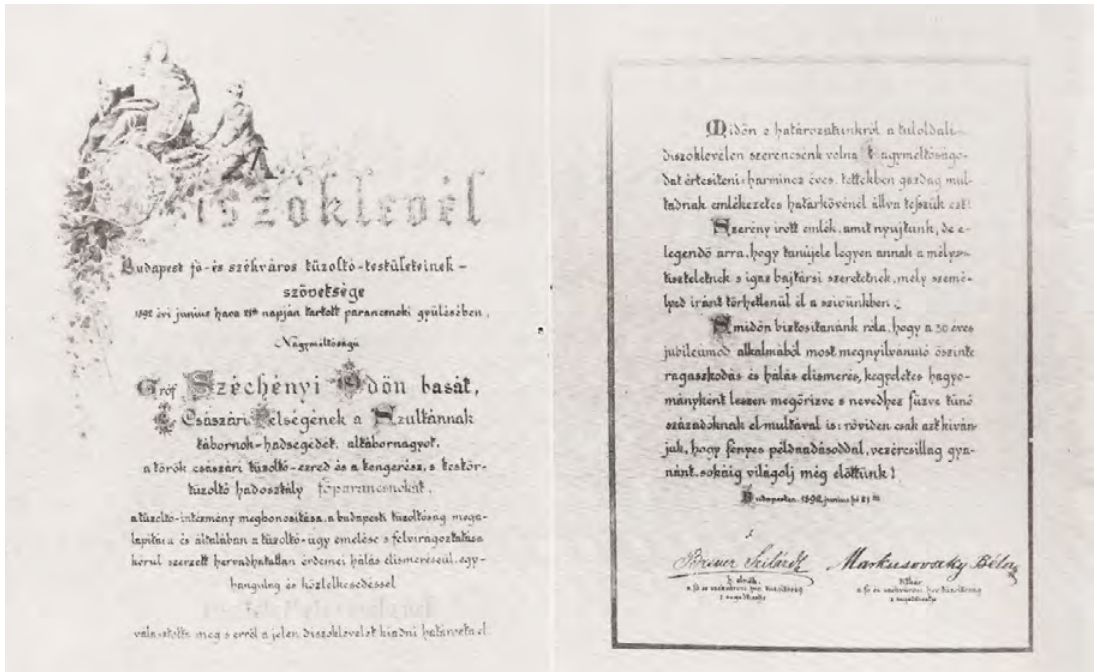 Díszoklevél
Budapest fő-és székváros tűzoltó-testületeinek-
szövetsége
1892 évi junius hava 21ik napján tartott parancsnoki gyülésében,
Nagyméltóságu
Gróf Széchényi Ödön basát,
Ő Császári Felségének a Szultánnak
tábornok-hadsegédét, altábornagyot,
a török császári tűzoltó-ezred és a tengerész, s testőr-
tűzoltó hadosztály főparancsnokát,
a tűzoltó-intézmény megbonositása, a budapesti tűzoltóság mega-
lapitása és általában a tűzoltó-ügy emelése s felvirágoztatása
körül szerzett hervadhatatlan érdemei hálás elismeréseül, egy-
hangulag és közlelkesedéssel
meg s erről a jelen diszoklevelet kiadni határozta el.
Midőn e határozatunkról a tuloldali
diszoklevelen szerencsénk volna Nagyméltóságo-
dat értesiteni: harmincz éves, tettekben gazdag mul-
tadnak emlékezetes határkövénél állva tesszük ezt!
Szerény irott emlék, amit nyujtunk, de e-
legendő arra, hogy tanújele legyen annak a mély
tiszteletnek s igaz bajtársi szeretetnek, mely szemé-
lyed iránt törhetlenül él a szivünkben.
Amidőn biztositanánk róla, hogy a 30 éves
jubileumod alkalmából most megnyilvánuló őszinte
ragaszkodás és hálás elismerés, kegyeletes hagyo-
mányként leszen megőrizve s nevedhez fűzve tünő
századoknak elmultával is: röviden csak azt kiván-
juk, hogy fényes példaadásoddal, vezércsillag gya-
nánt, sokáig világolj még előttünk!
Budapesten, 1892. junius hó 21én
Breuer Szilárd
h. elnök,
Markusovszky Béla
titkár